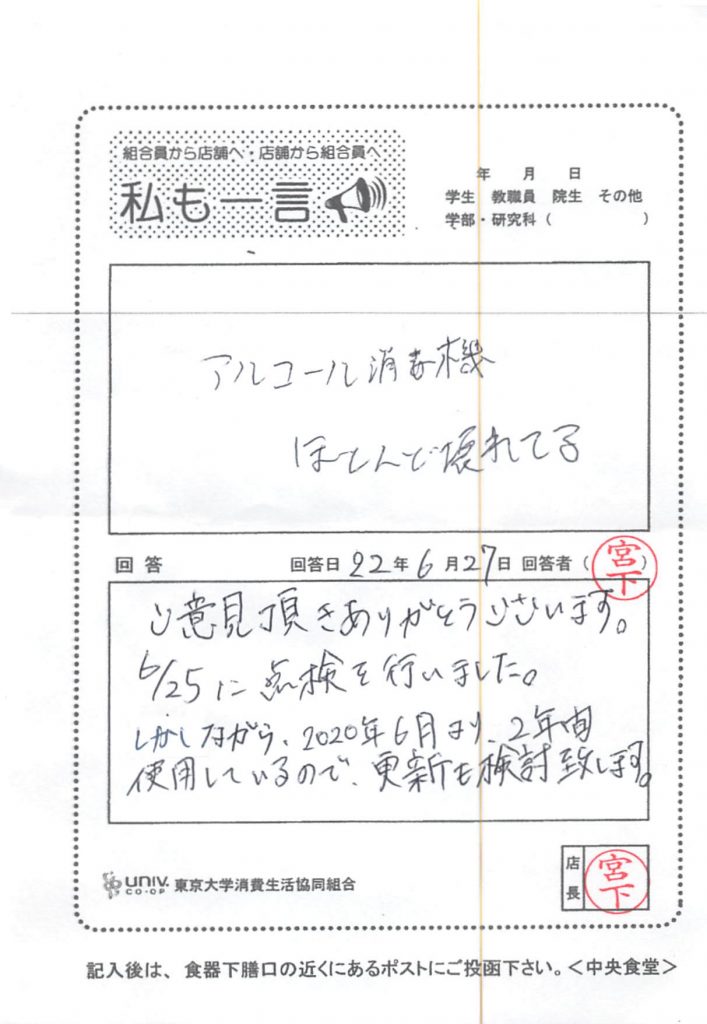 組合員から店舗へ・店舗から組合員へ
私も一言
年 月 日
学生 教職員 院生 その他
学部・研究科 ( )
アルコール消毒機
ほとんど壊れてる
回答 回答日 22年 6月 27日 回答者 (宮下)
ご意見頂きありがとうございます。
6/25に点検を行いました。
しかしながら、2020年6月より、2年間
使用しているので、更新も検討致します。
UNIV. CO-OP 東京大学消費生活協同組合
店長 宮下
記入後は、食器下膳口の近くにあるポストにご投函下さい。<中央食堂>